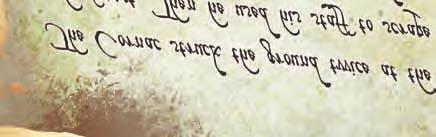 The Cornac struck the ground twice at the
Then he used his staff to scrape